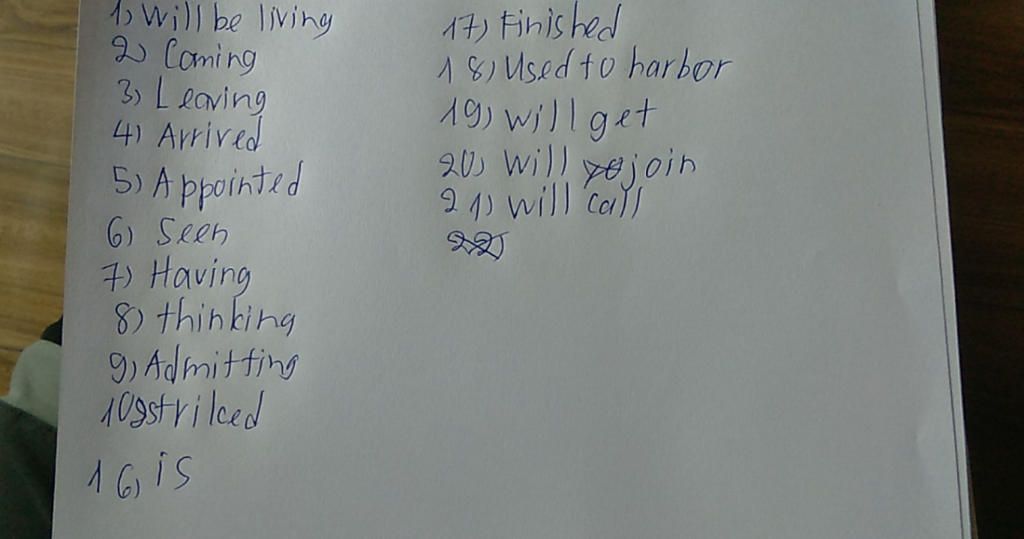 1) Will be living
2) Coming
3) Leaving
4) Arrived
5) Appointed
6) Seen
7) Having
8) thinking
9) Admitting
10) striked
16, is
17) Finished
18) Used to harbor
19) will get
20) Will join
21) will call
22)